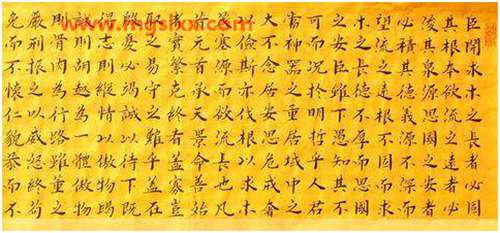 www.mgslxx.com
臣聞求木之長者必固
其根本欲流之遠者必
浚其泉源思國之安者
必積其德義源不深而
望流之遠根不固而求
木之長德不厚而思國
之安臣雖下愚知其不
可而況於明哲乎人君
當神器之重居域中之
大不念居安思危戒奢
以儉斯亦伐根以求木
茂塞源而欲流長也凡
昔元首承天景命善始
者實繁克終者蓋寡豈
取之易守之難乎蓋在
殷憂必竭誠以待下既
得志則縱情以傲物竭
誠則胡越為一體傲物
則骨肉為行路雖董之
以嚴刑振之以威怒終苟
免而不懷仁貌恭而不